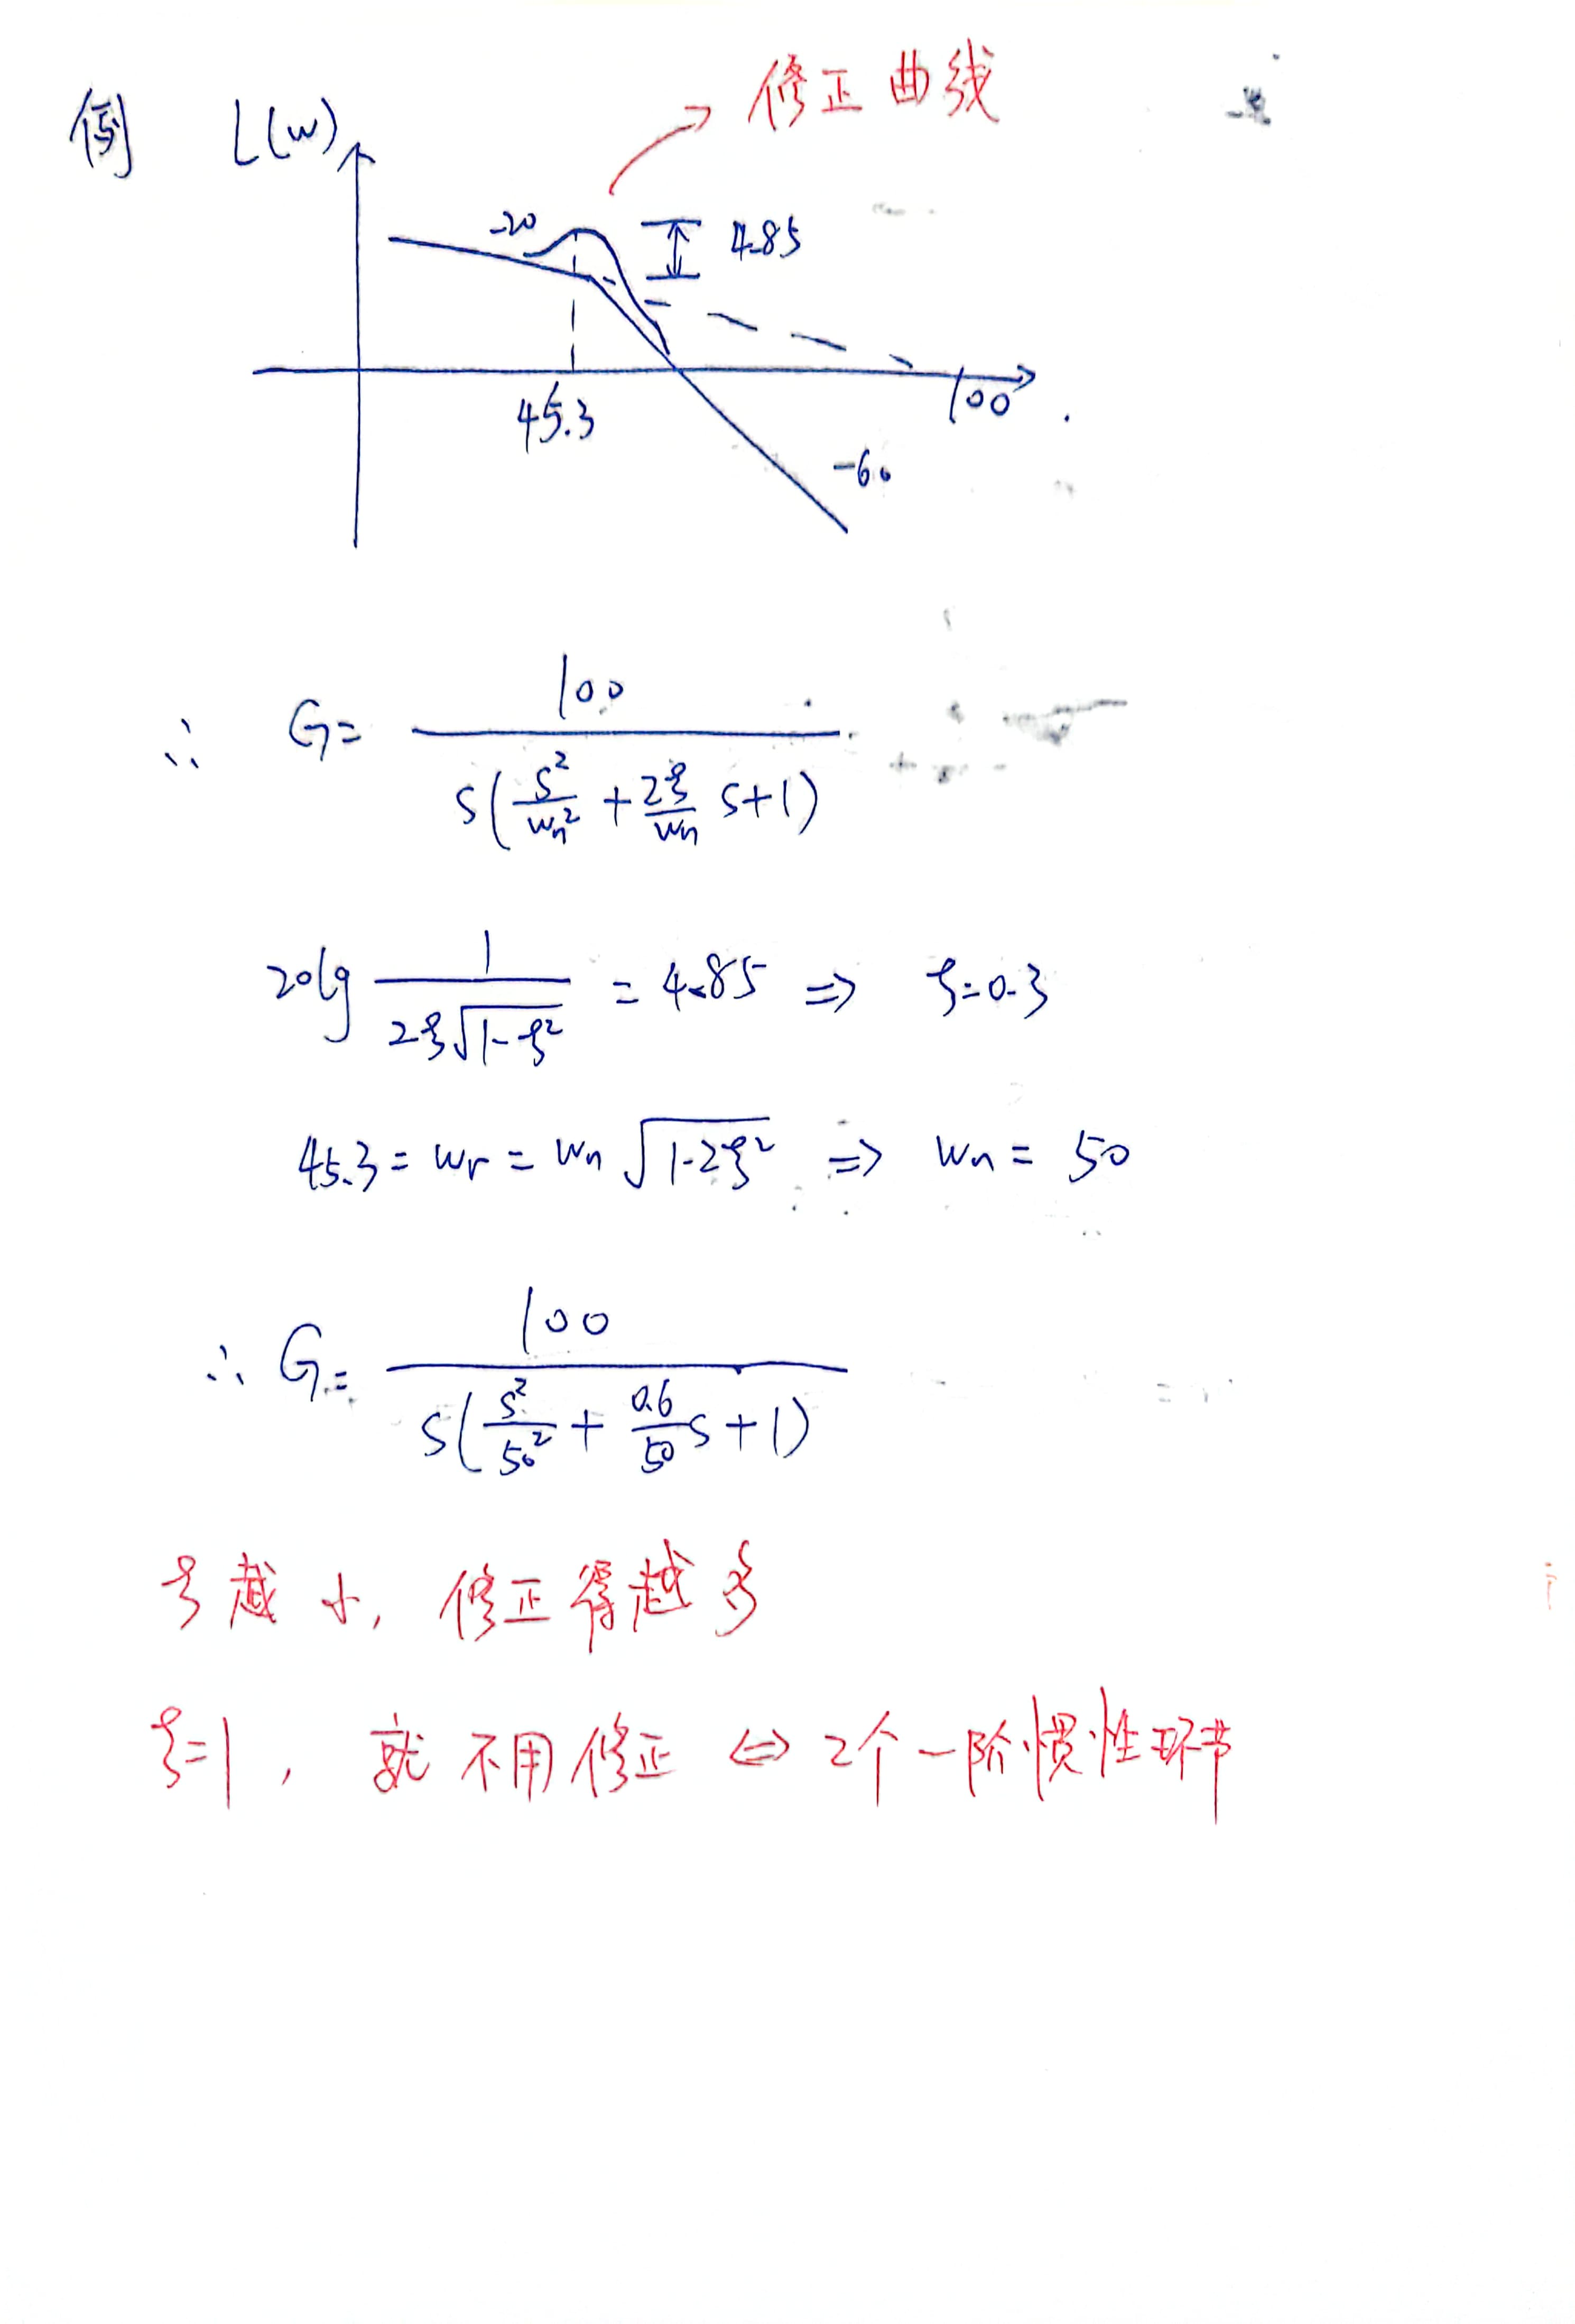 例 L(w) 修正曲线
-20 4.85
45.3 100
-60
∴ G = 100 / s(s²/wn² + 2ξ/wn s+1)
20lg 1/(2ξ√(1-ξ²)) = 4.85 => ξ=0.3
45.3 = wr = wn √(1-2ξ²) => wn = 50
∴ G = 100 / s(s²/50² + 0.6/50 s+1)
ξ越小, 修正得越多
ξ=1, 就不用修正 <=> 2个一阶惯性环节